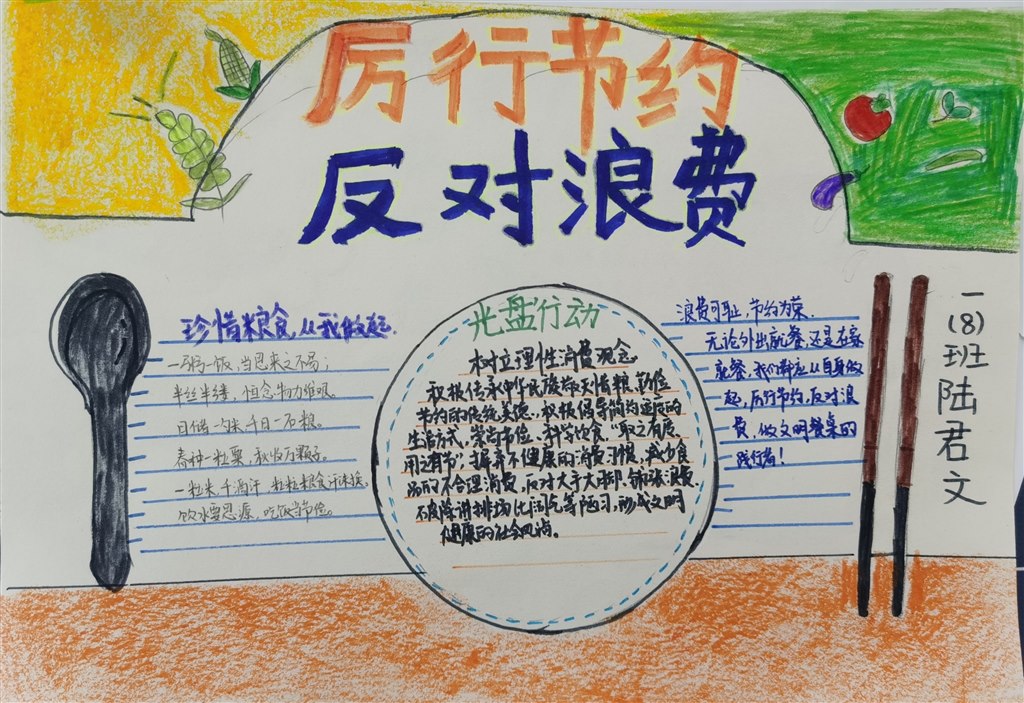 厉行节约
反对浪费
珍惜粮食,从我做起.
一粥一饭,当思来之不易;
半丝半缕,恒念物力维艰.
日储一勺米,千日一石粮.
春种一粒粟,秋收万颗子.
一粒米,千滴汗,粒粒粮食汗珠换.
饮水要思源,吃饭当节俭。
光盘行动
树立理性消费观念.
积极传承中华民族崇天惜粮、勤俭
节约的传统美德.积极倡导简约适度的
生活方式,崇尚节俭、科学饮食,"取之有度,
用之有节",摒弃不健康的消费习惯,减少食
品的不合理消费,反对大手大脚、铺张浪费,
不良讲排场、比阔气等陋习,形成文明
健康的社会风尚。
浪费可耻,节约为荣.
无论外出就餐,还是在家
就餐,我们都应从自身做
起,厉行节约,反对浪
费,做文明餐桌的
践行者!
一(8)班陆君文